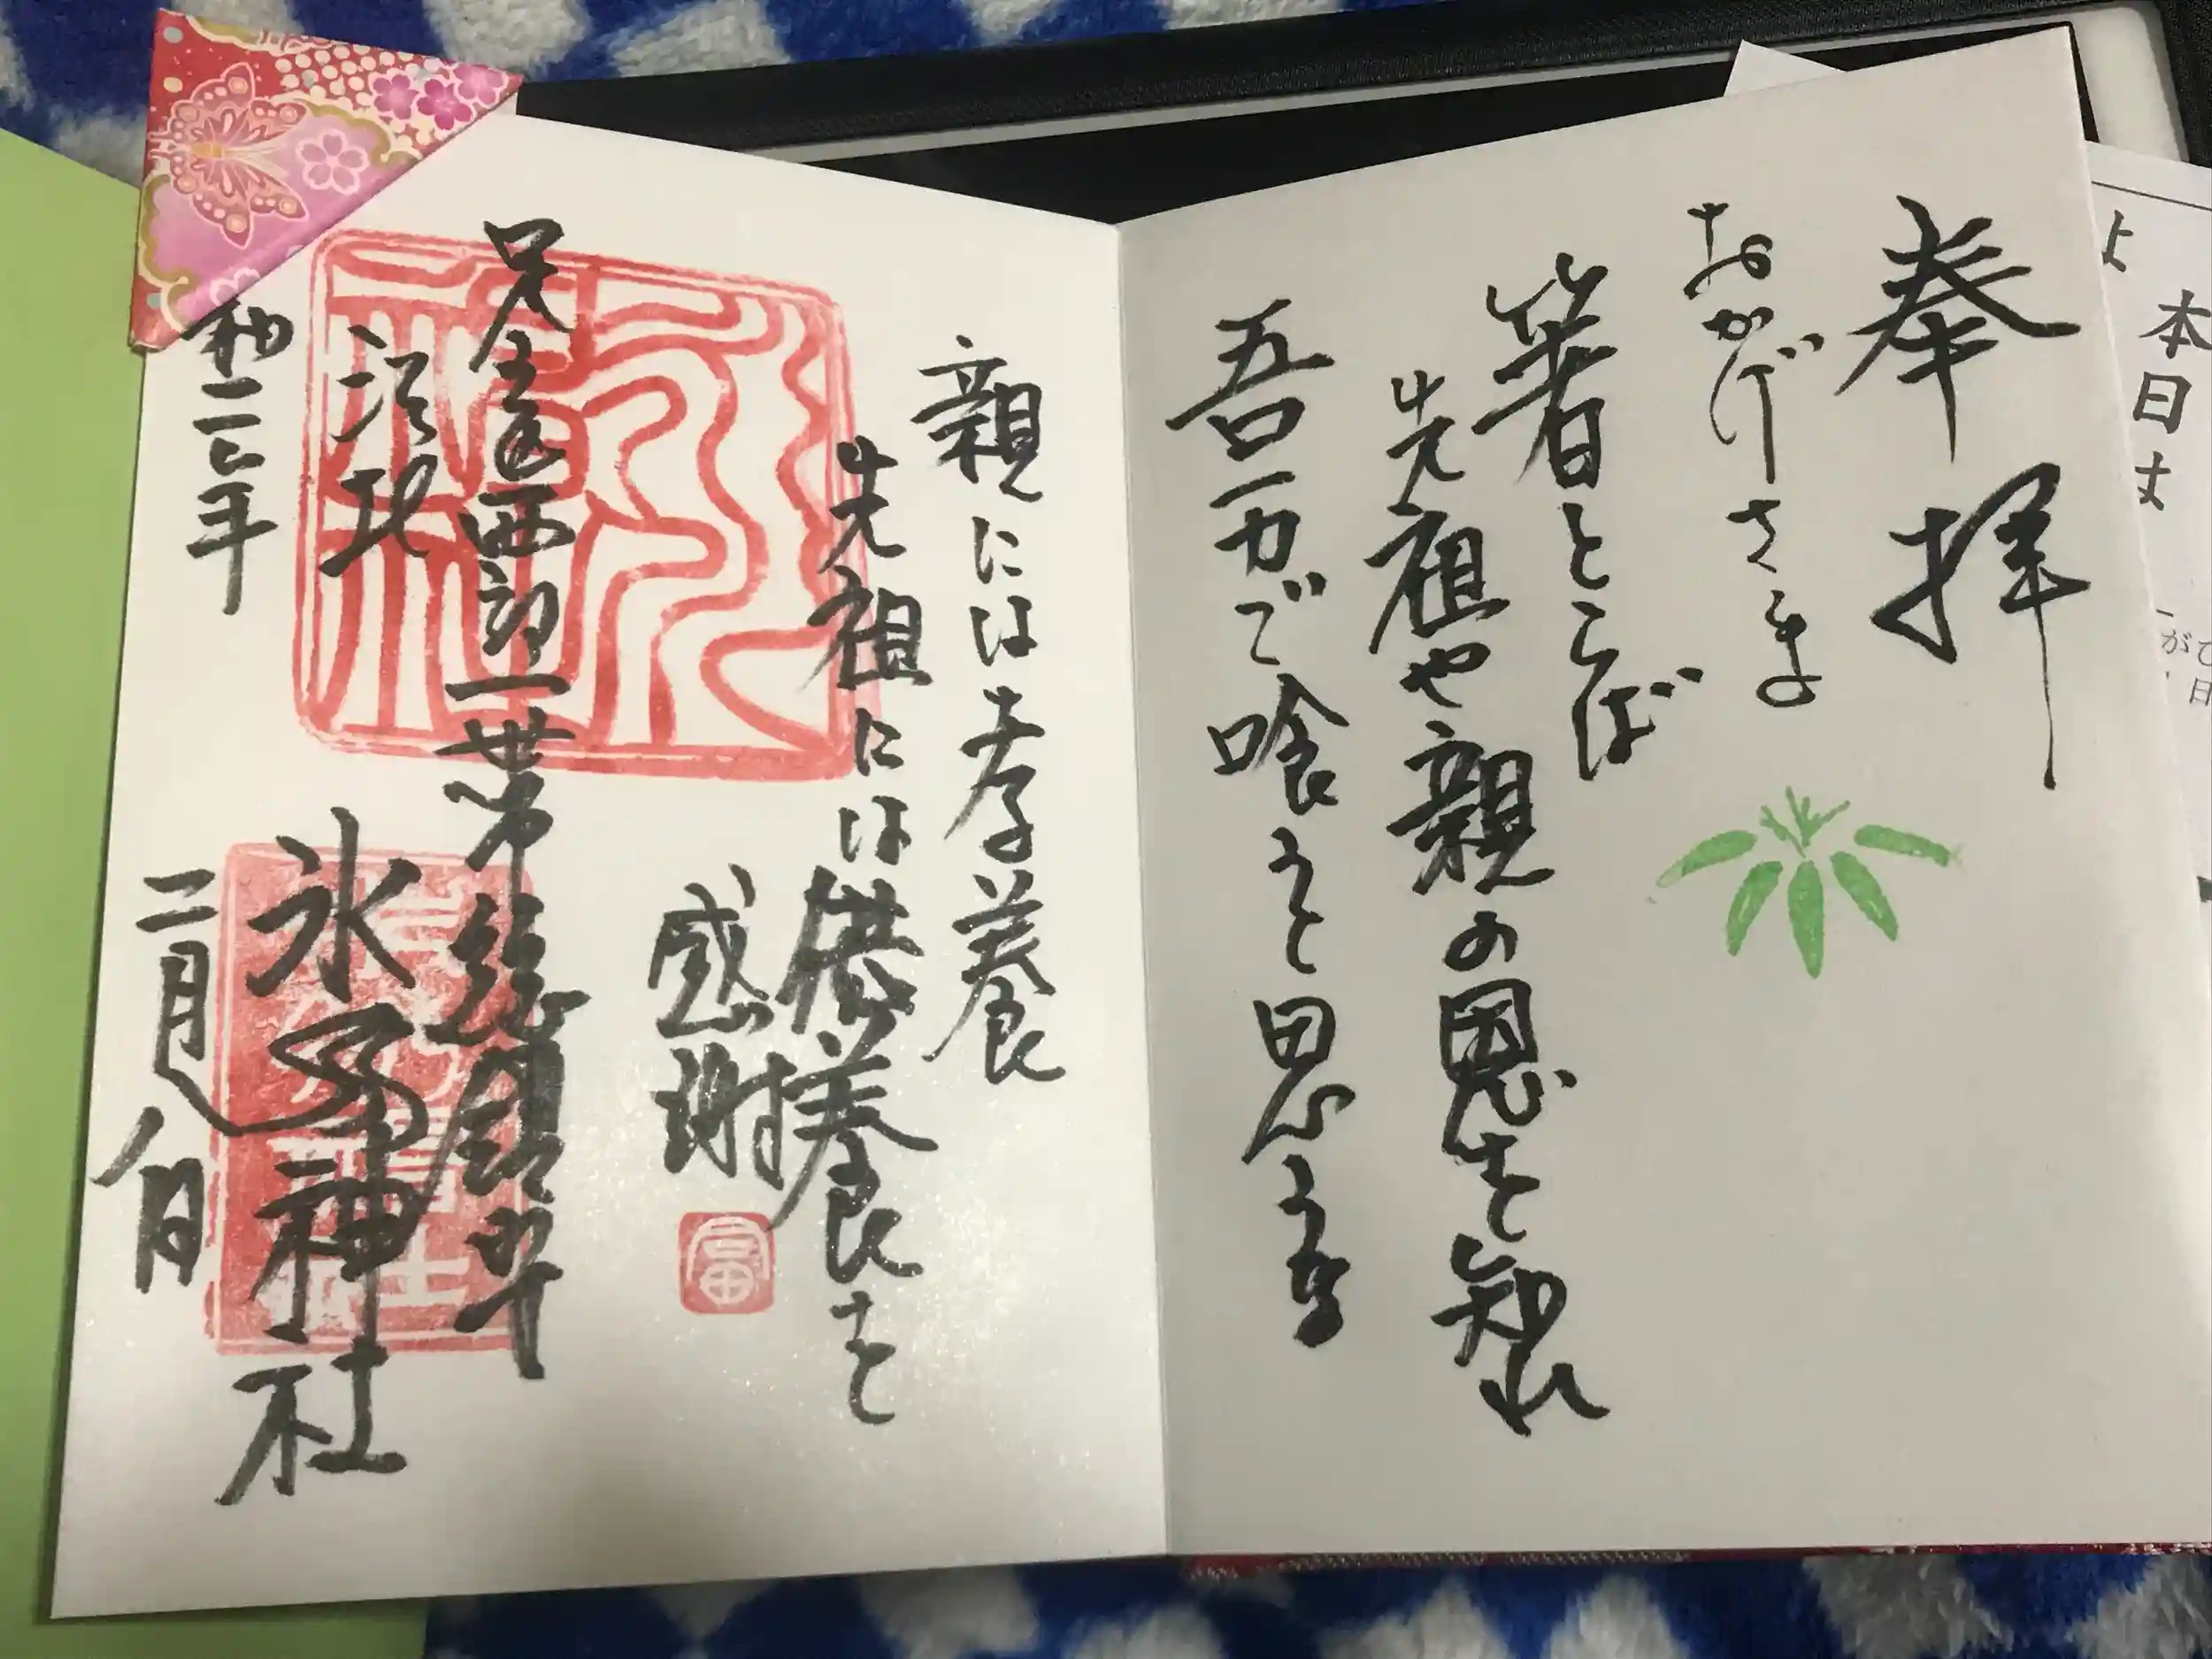 奉拝
おかげさま
箸とらば
先祖や親の恩を知れ
吾一力で喰うと思うな
親には孝養
先祖には供養を
感謝
足立区西部一帯総鎮守
江北
氷川神社
和二年
二月八日
本日は